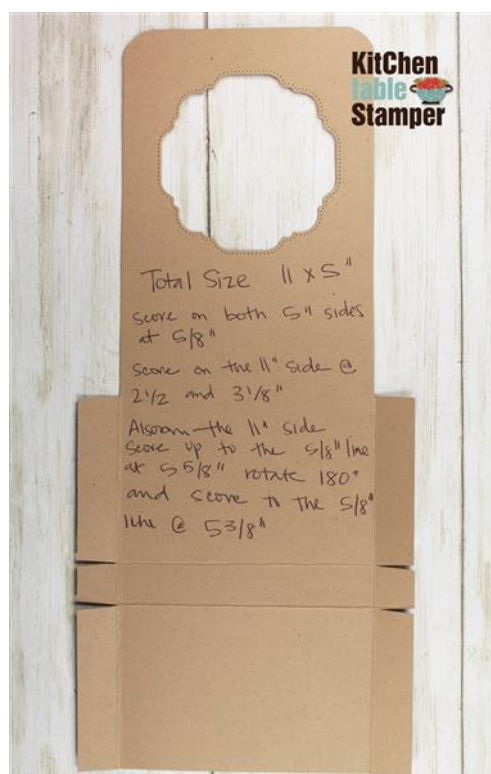 KitChen
table
Stamper
Total Size 11 x 5"
Score on both 5" sides
at 5/8"
Score on the 11" side @
2 1/2 and 3 1/8"
Also on the 11" side
Score up to the 5/8" line
at 5 5/8" rotate 180°
and score to the 5/8"
line @ 5 3/8"